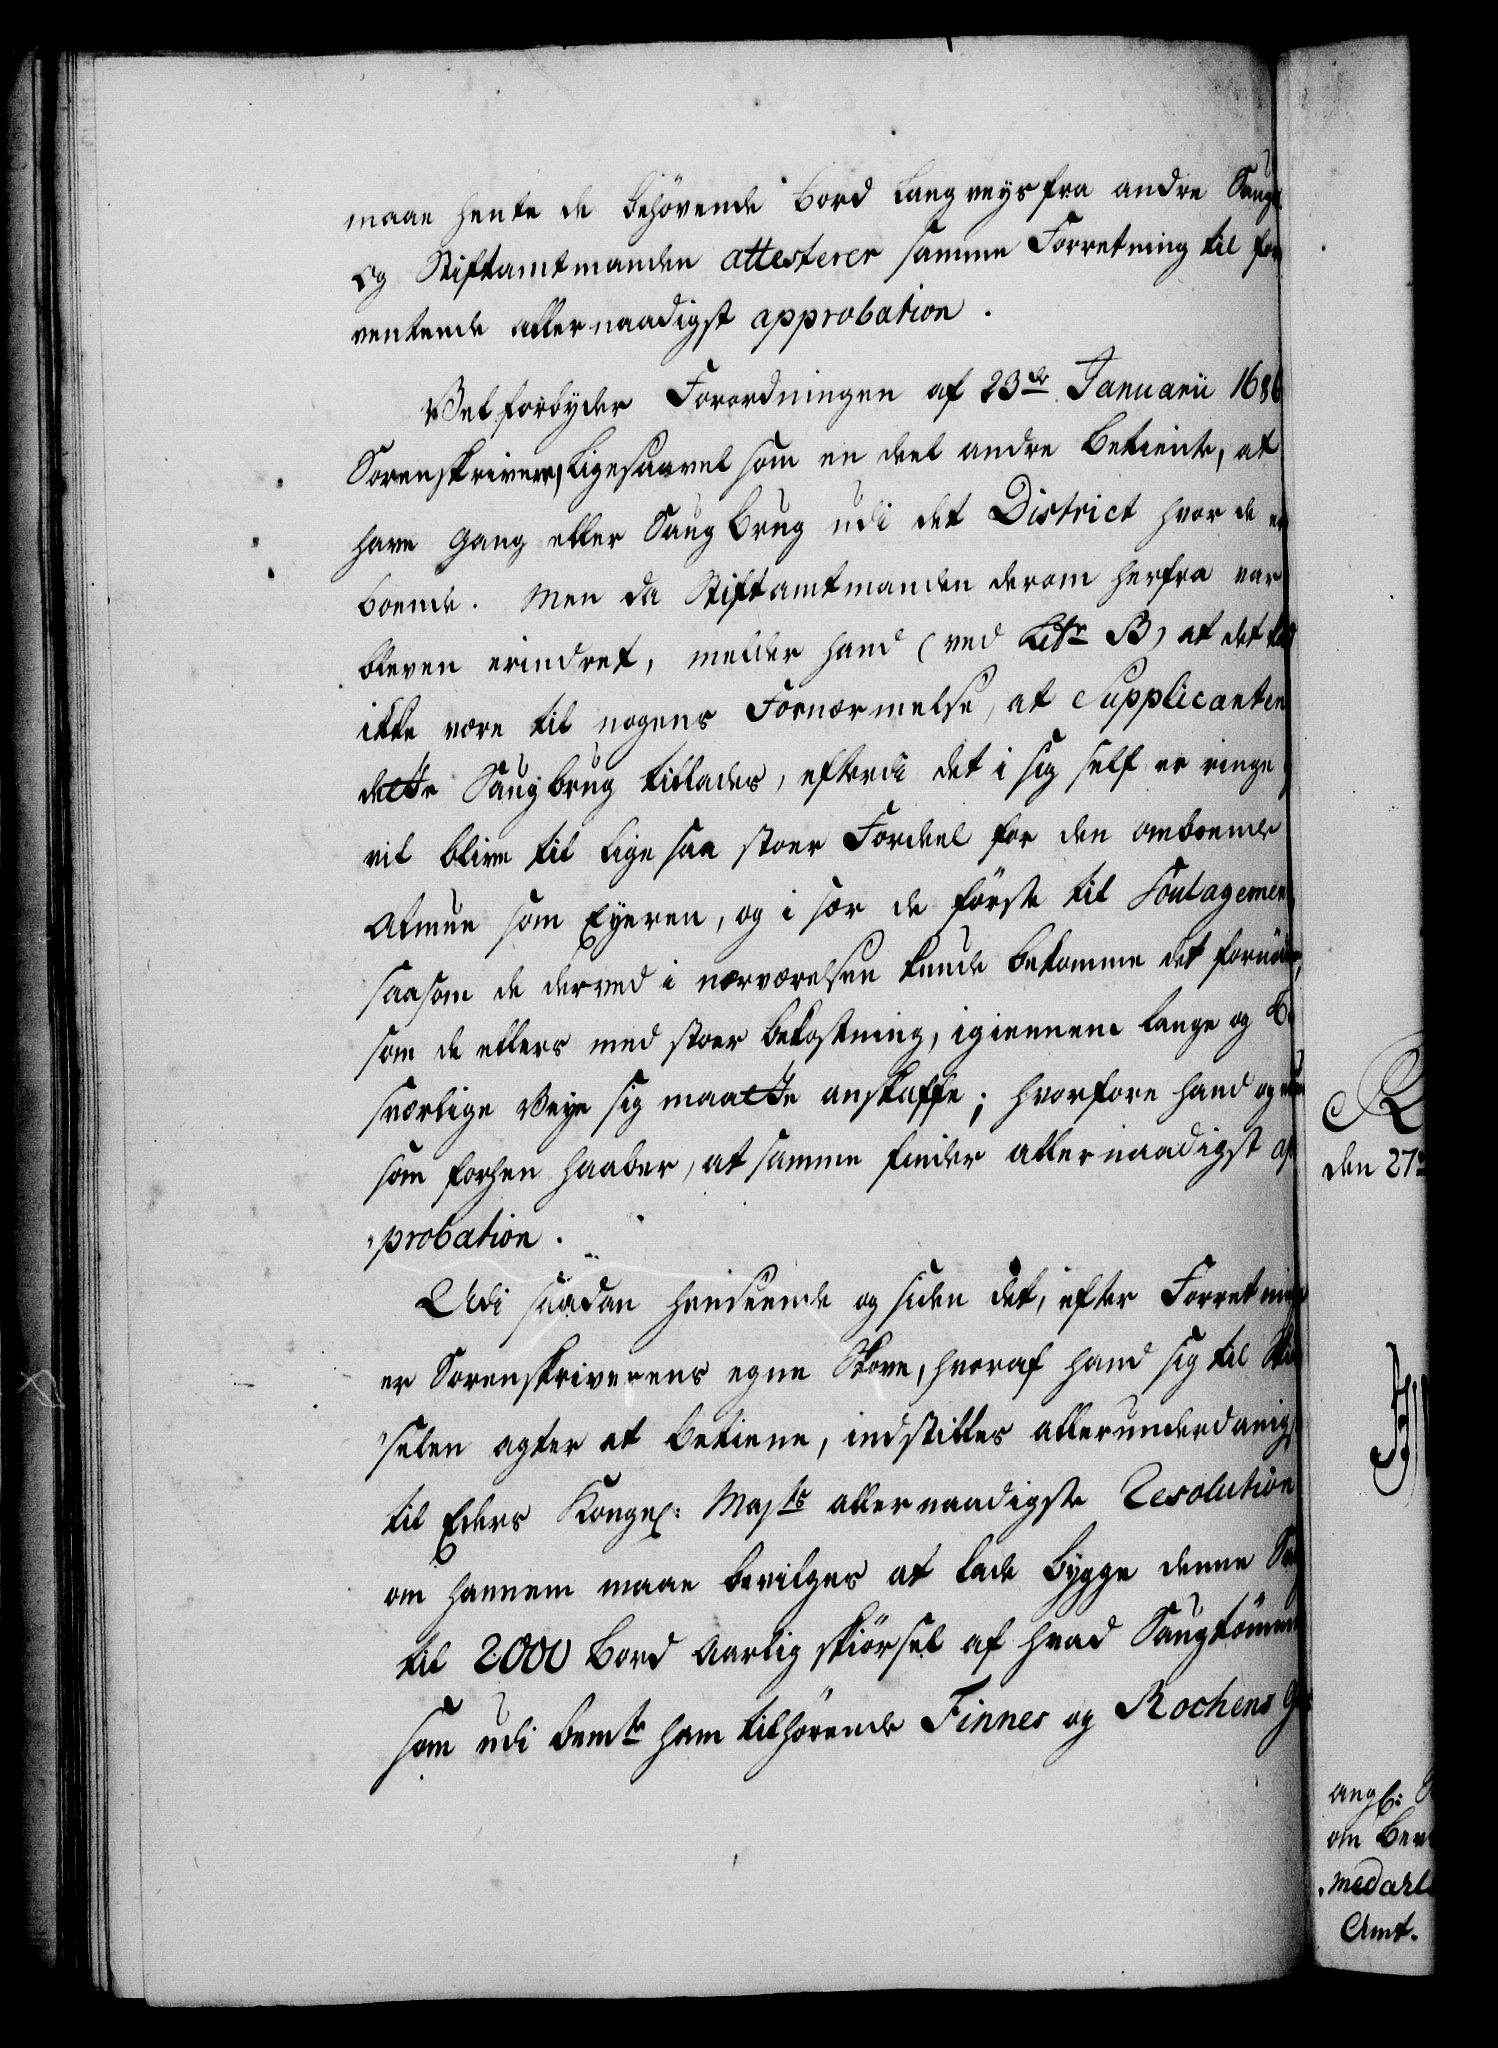 maae hente de behövende Bord langveys fra andre Sauge
og Stiftamtmanden attesterer samme Forretning til for
ventende allernaadigst approbation.
Vel forbyder Forordningen af 23de Januarii 1686
Sorenskrivere, ligesaavel som en deel andre Betiente, at
have Gang eller Saugbrug udi det District hvor de ere
boende. Men da Stiftamtmanden derom herfra var
bleven erindret, melder hand (ved Litr B) at det
ikke være til nogens Fornærmelse, at Supplicanten
dette Saugbrug tillades, efterdi det i sig self er ringe
vil blive til lige saa stoer Fordeel for den omboende
Almue som Eyeren, og i sær de förste til Soulagement
saasom de derved i nærværelsen kunde bekomme det fornödne,
som de ellers med stoer bekostning, igiennem lange og be
sværlige Veye sig maatte anskaffe; hvorfore hand og nu
som forhen haaber, at samme finder allernaadigst ap
probation.
Udi saadan henseende og siden det, efter Forretningen
er Sorenskriverens egne Skove, hvoraf hand sig til Skiör
selen agter at betiene, indstilles allerunderdanigst
til Eders Kongel: Majts allernaadigste Resolution
om hannem maae bevilges at lade bygge denne Saug
til 2000 Bord Aarlig skiörsel af hvad Saugtömmer
som udi bemte ham tilhörende Finnes og Rochens
den 27
angl:
om Bev
medarl
Amt.